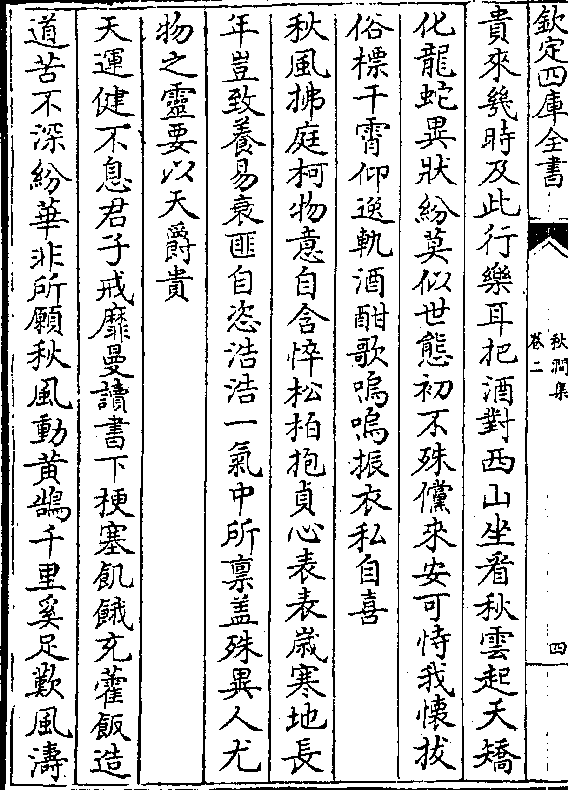 欽定四庫全書
秋澗集
卷二
四
貴來幾時及此行樂耳把酒對西山坐看秋雲起夭矯
化龍蛇異狀紛莫似世態初不殊儻來安可恃我懷拔
俗標干霄仰逸軌酒酣歌嗚嗚振衣私自喜
秋風拂庭柯物意自含悴松柏抱貞心表表歲寒地長
年豈致養易衰匪自恣浩浩一氣中所禀盖殊異人尤
物之靈要以天爵貴
天運健不息君子戒靡曼讀書下梗塞飢餓充藿飯造
道苦不深紛華非所願秋風動黄鵠千里奚足歎風濤